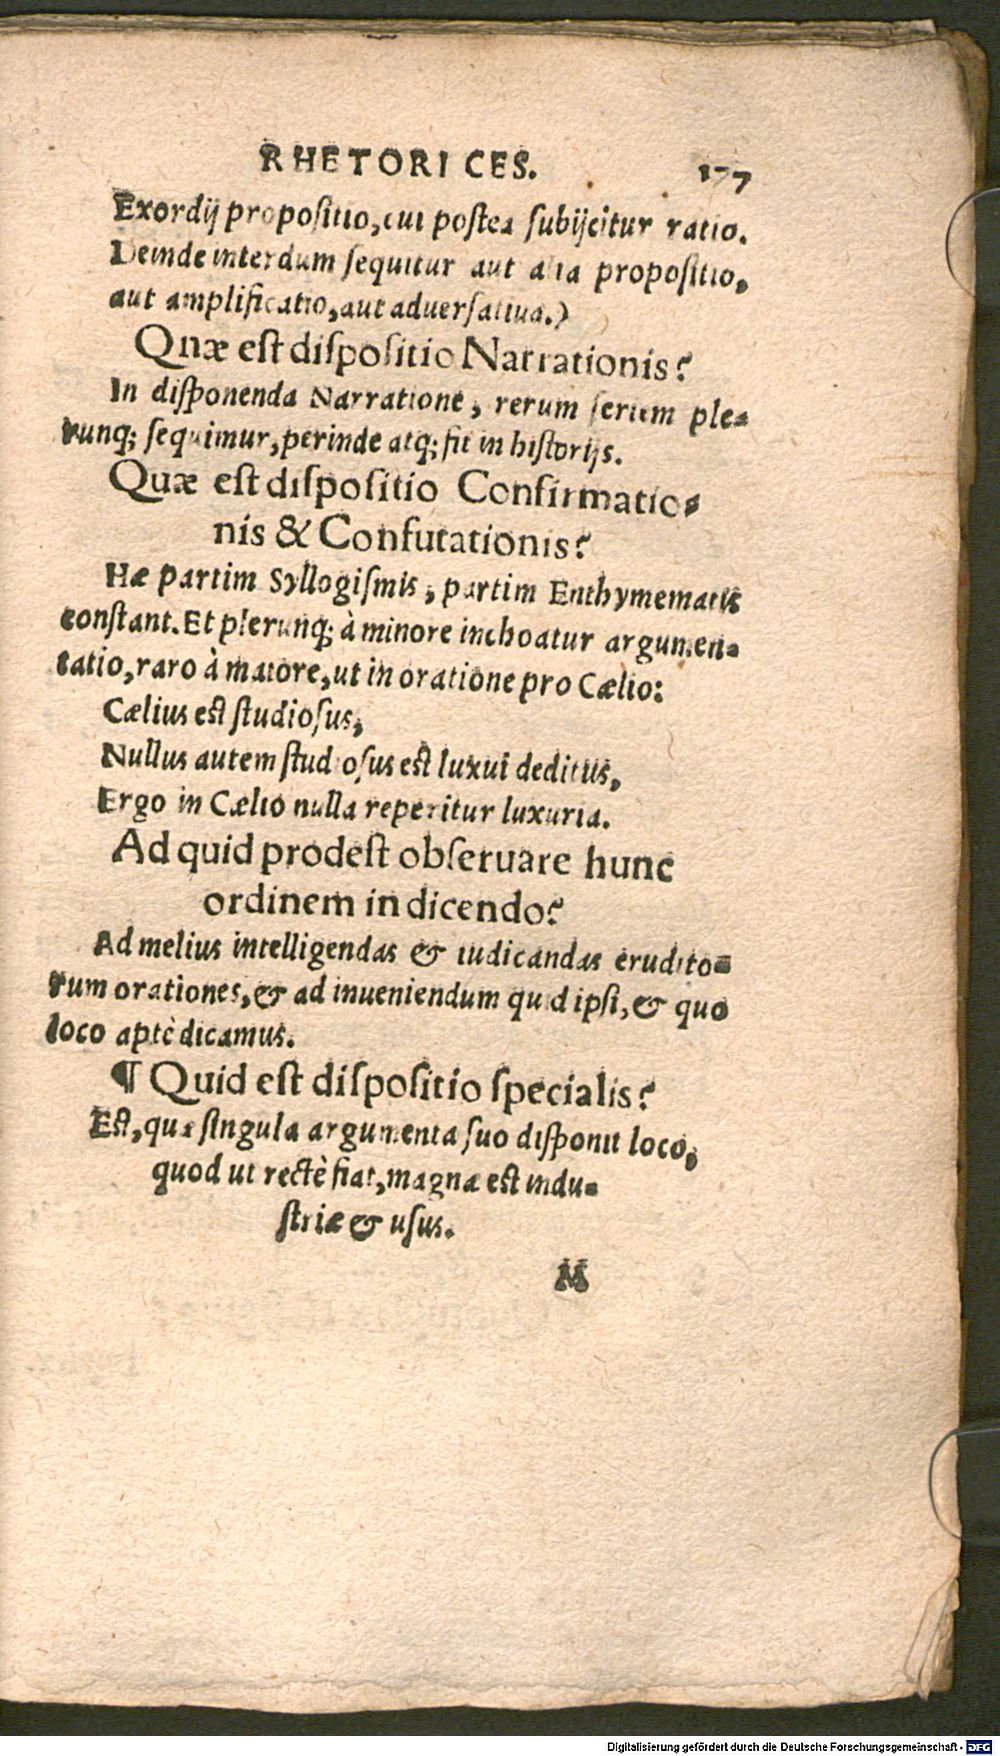 RHETORICES. 177
Exordij propositio, cui postea subijcitur ratio.
Deinde interdum sequitur aut alia propositio,
aut amplificatio, aut aduersatiua.)
Quæ est dispositio Narrationis?
In disponenda Narratione, rerum seriem ple-
runq; sequimur, perinde atq; fit in historijs.
Quæ est dispositio Confirmatio-
nis & Confutationis?
Hæ partim Syllogismis, partim Enthymematis
constant. Et plerunq; à minore inchoatur argumen-
tatio, raro à maiore, ut in oratione pro Cælio:
Cælius est studiosus,
Nullus autem studiosus est luxui deditus,
Ergo in Cælio nulla reperitur luxuria.
Ad quid prodest obseruare hunc
ordinem in dicendo?
Ad melius intelligendas & iudicandas erudito-
rum orationes, & ad inueniendum quid ipsi, & quo
loco aptè dicamus.
¶ Quid est dispositio specialis?
Est, quæ singula argumenta suo disponit loco,
quod ut rectè fiat, magnæ est indu-
striæ & usus.
M
Digitalisierung gefördert durch die Deutsche Forschungsgemeinschaft - DFG